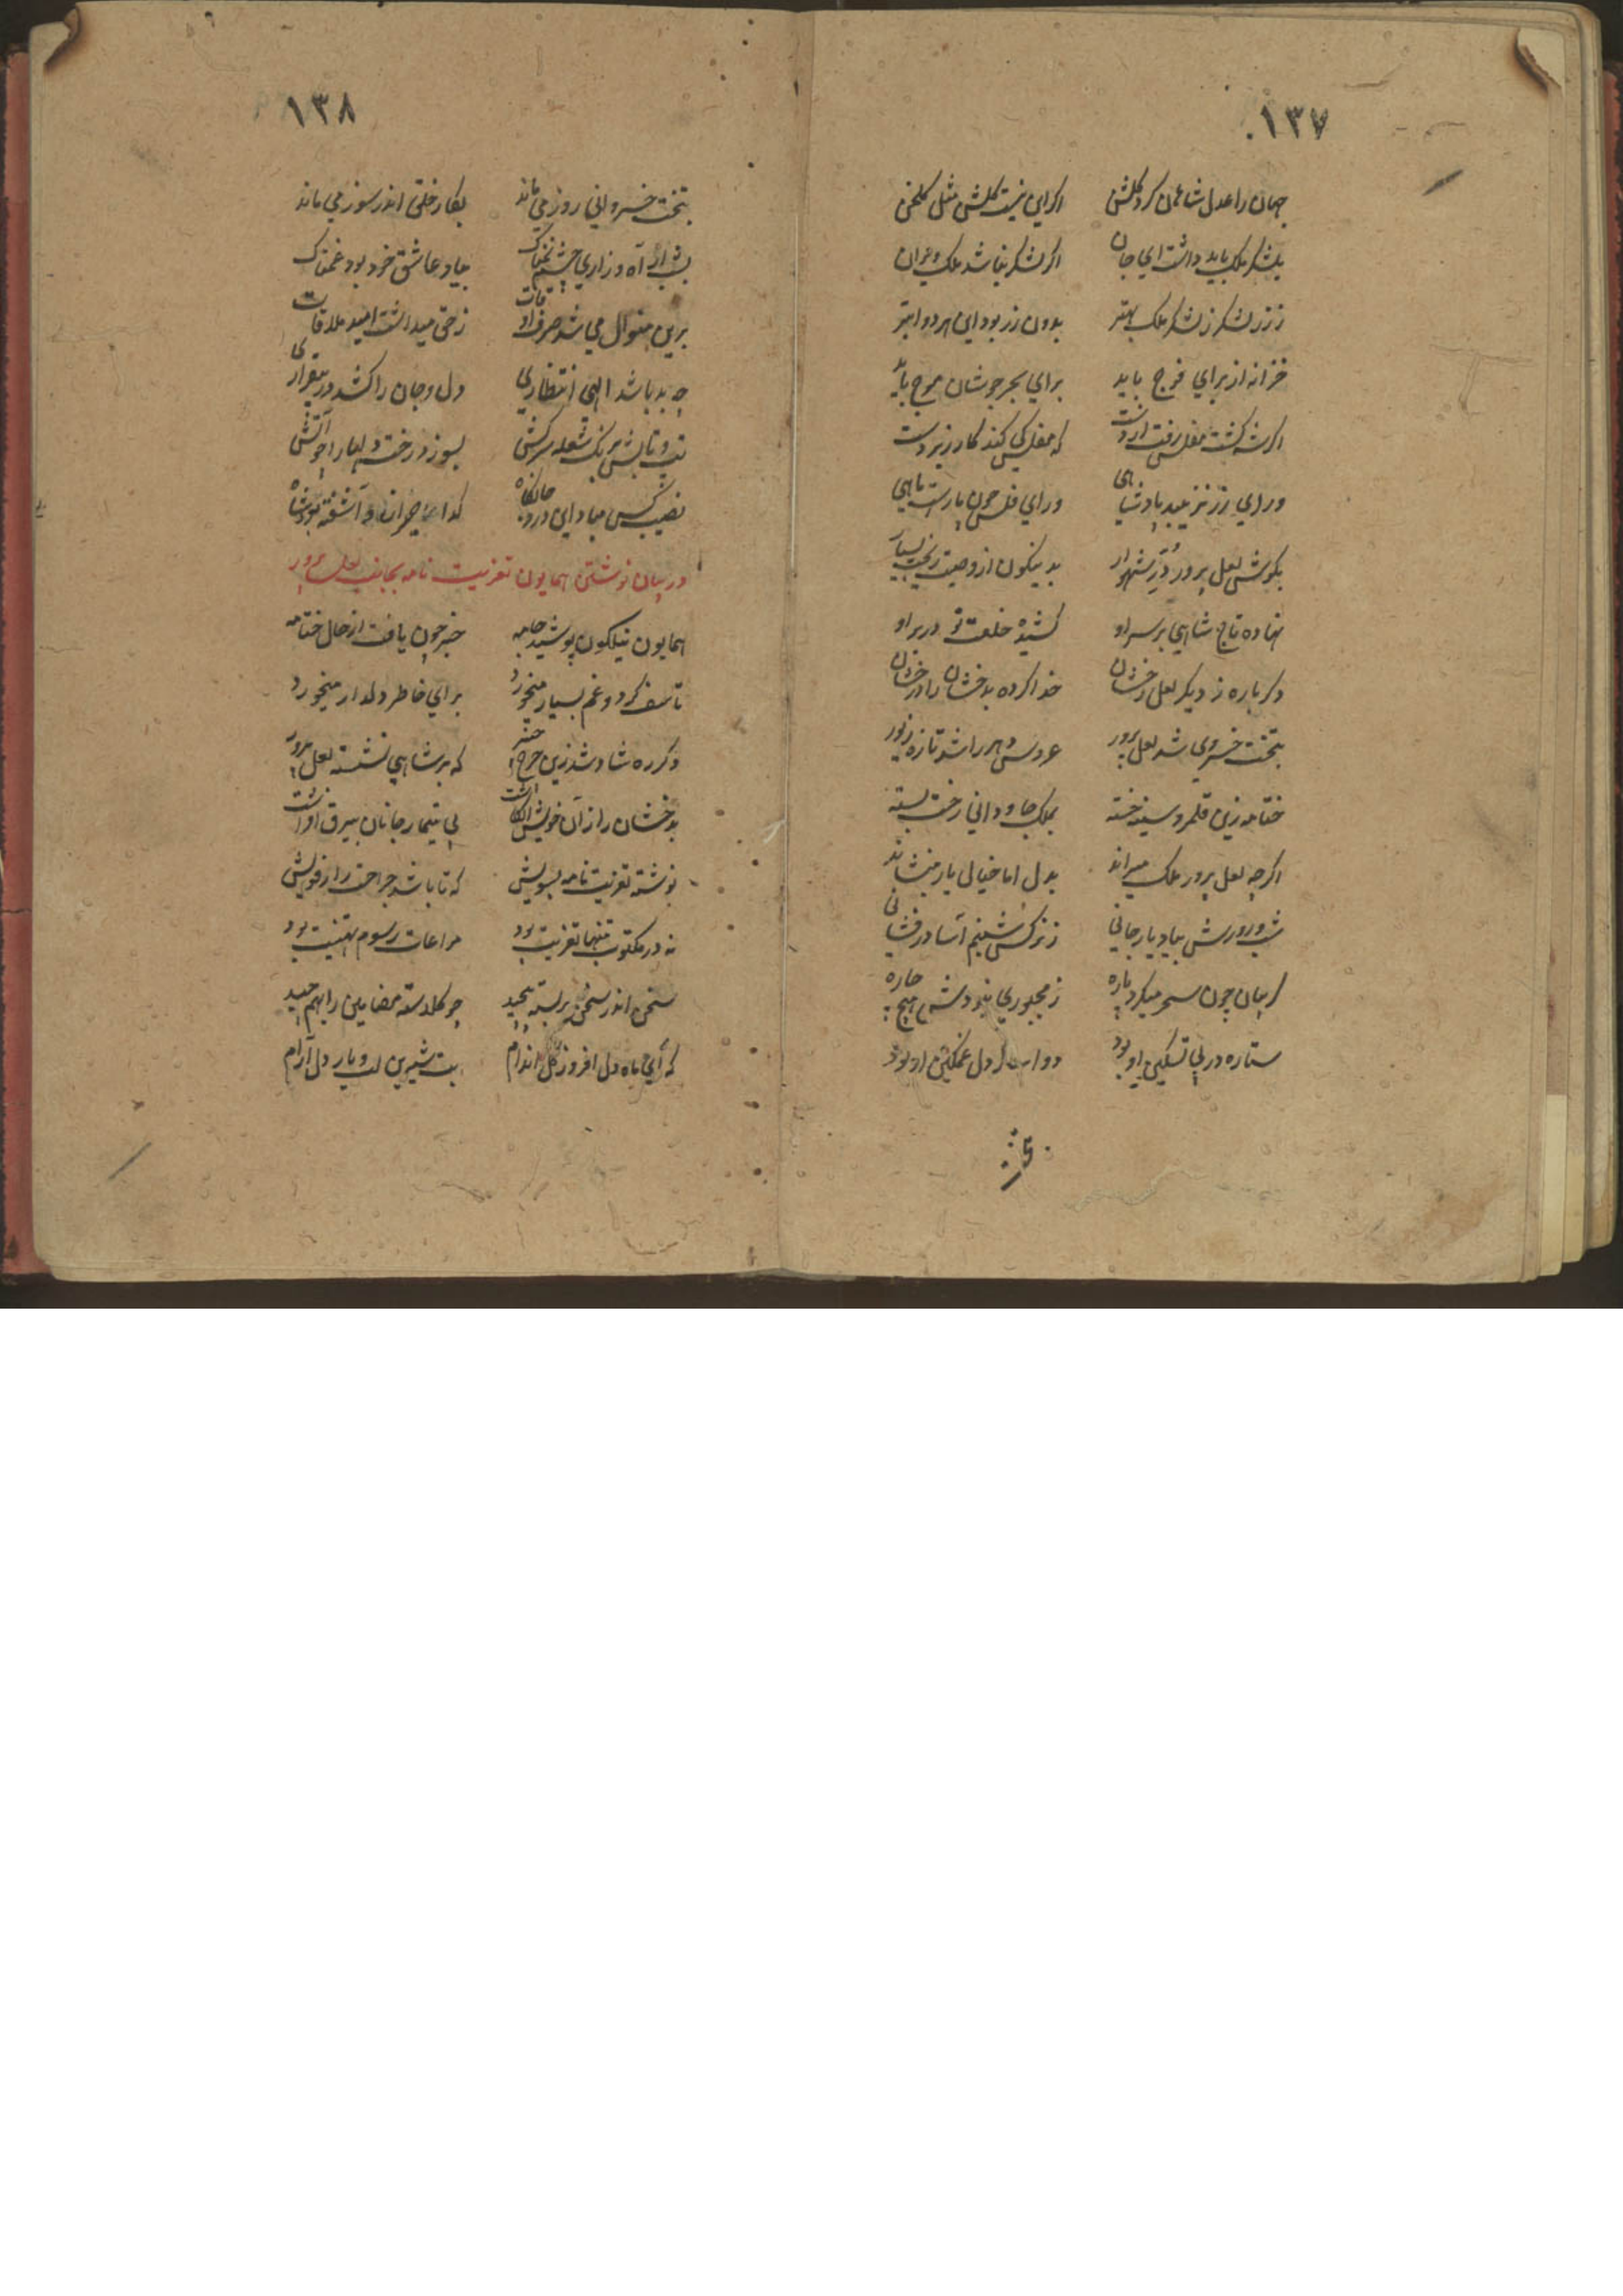 ۱۳۷
جهان را عدل شاهان کرد گلشن اگر این نیست گلشن مثل گلخن
بلشکر ملک باید داشت ای جان اگر لشکر نباشد ملک ویران
ز زر لشکر ز لشکر ملک بهتر بدون زر بود این هر دو ابتر
خزانه از برای فوج باید برای بحر جوشان موج باید
اگر شه گشت مفلس رفت از دست که مفلس کی کند کار زبردست
ورای زر نزیبد پادشاهی ورای فلس چون یارست ماهی
بگوش لعل پرور دُرّ شهوار بدینگون از وصیت ریخت بسیار
نهاده تاج شاهی بر سر او کشیده خلعت نو در بر او
دگرباره ز دیگر لعل رخشان خدا کرده بدخشان را درخشان
بتخت خسروی شد لعل پرور عروس دهر را شد تازه زیور
ختامه زین قلمرو سینه خسته بملک جاودانی رخت بسته
اگرچه لعل پرور ملک میراند بدل اما خیال یار منشاند
شب و روزش بیاد یار جانی ز نرگس شبنم آسا در فشانی
گریبان چون سحر میکرد پاره ز مجبوری نبودش هیچ چاره
ستاره در پی تسکین او بود دوا دل غمگین او بود
۱۳۸
بتخت خسروانی روز می ماند بکار خلق اندر سوز می ماند
بشب از آه و زاری چشم نمناک بیاد عاشق خود بود غمناک
برین منوال می شد صرف اوقات ز حق میداشت امید ملاقات
چه بد باشد الهی انتظاری دل و جان را کشد در بیقراری
تب و تابش برنگ شعله سرکش بسوزد رخت دلها را چو آتش
نصیب کس مباد این درد جانکاه گدا حیران و آشفته بود شاه
در بیان نوشتن همایون تعزیت نامه بجانب لعل پرور
همایون نیلگون پوشید جامه خبر چون یافت از حال ختامه
تاسف کرد و غم بسیار میخورد برای خاطر دلدار میخورد
دگر ره شاد شد زین چرخ اخضر که بر شاهی نشسته لعل پرور
بدخشان را از آن خویش انگاشت پی تیمار جانان بیرق افراشت
نوشته تعزیت نامه بسویش که تا باشد جراحت را رفویش
نه در مکتوب تنها تعزیت بود مراعات رسوم تهنیت بود
سخن اندر سخن بربسته پیچید چو گلدسته مضامین را بهم چید
که ای ماه دل افروز گل اندام بت شیرین لب و یار دل آرام